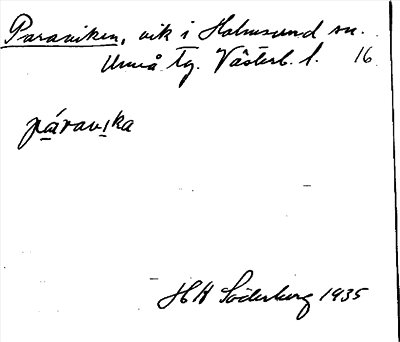 Paraviken, vik i Holmsund sn.
Umeå tg. Västerb. l. 16
páravika
HH Söderberg 1935